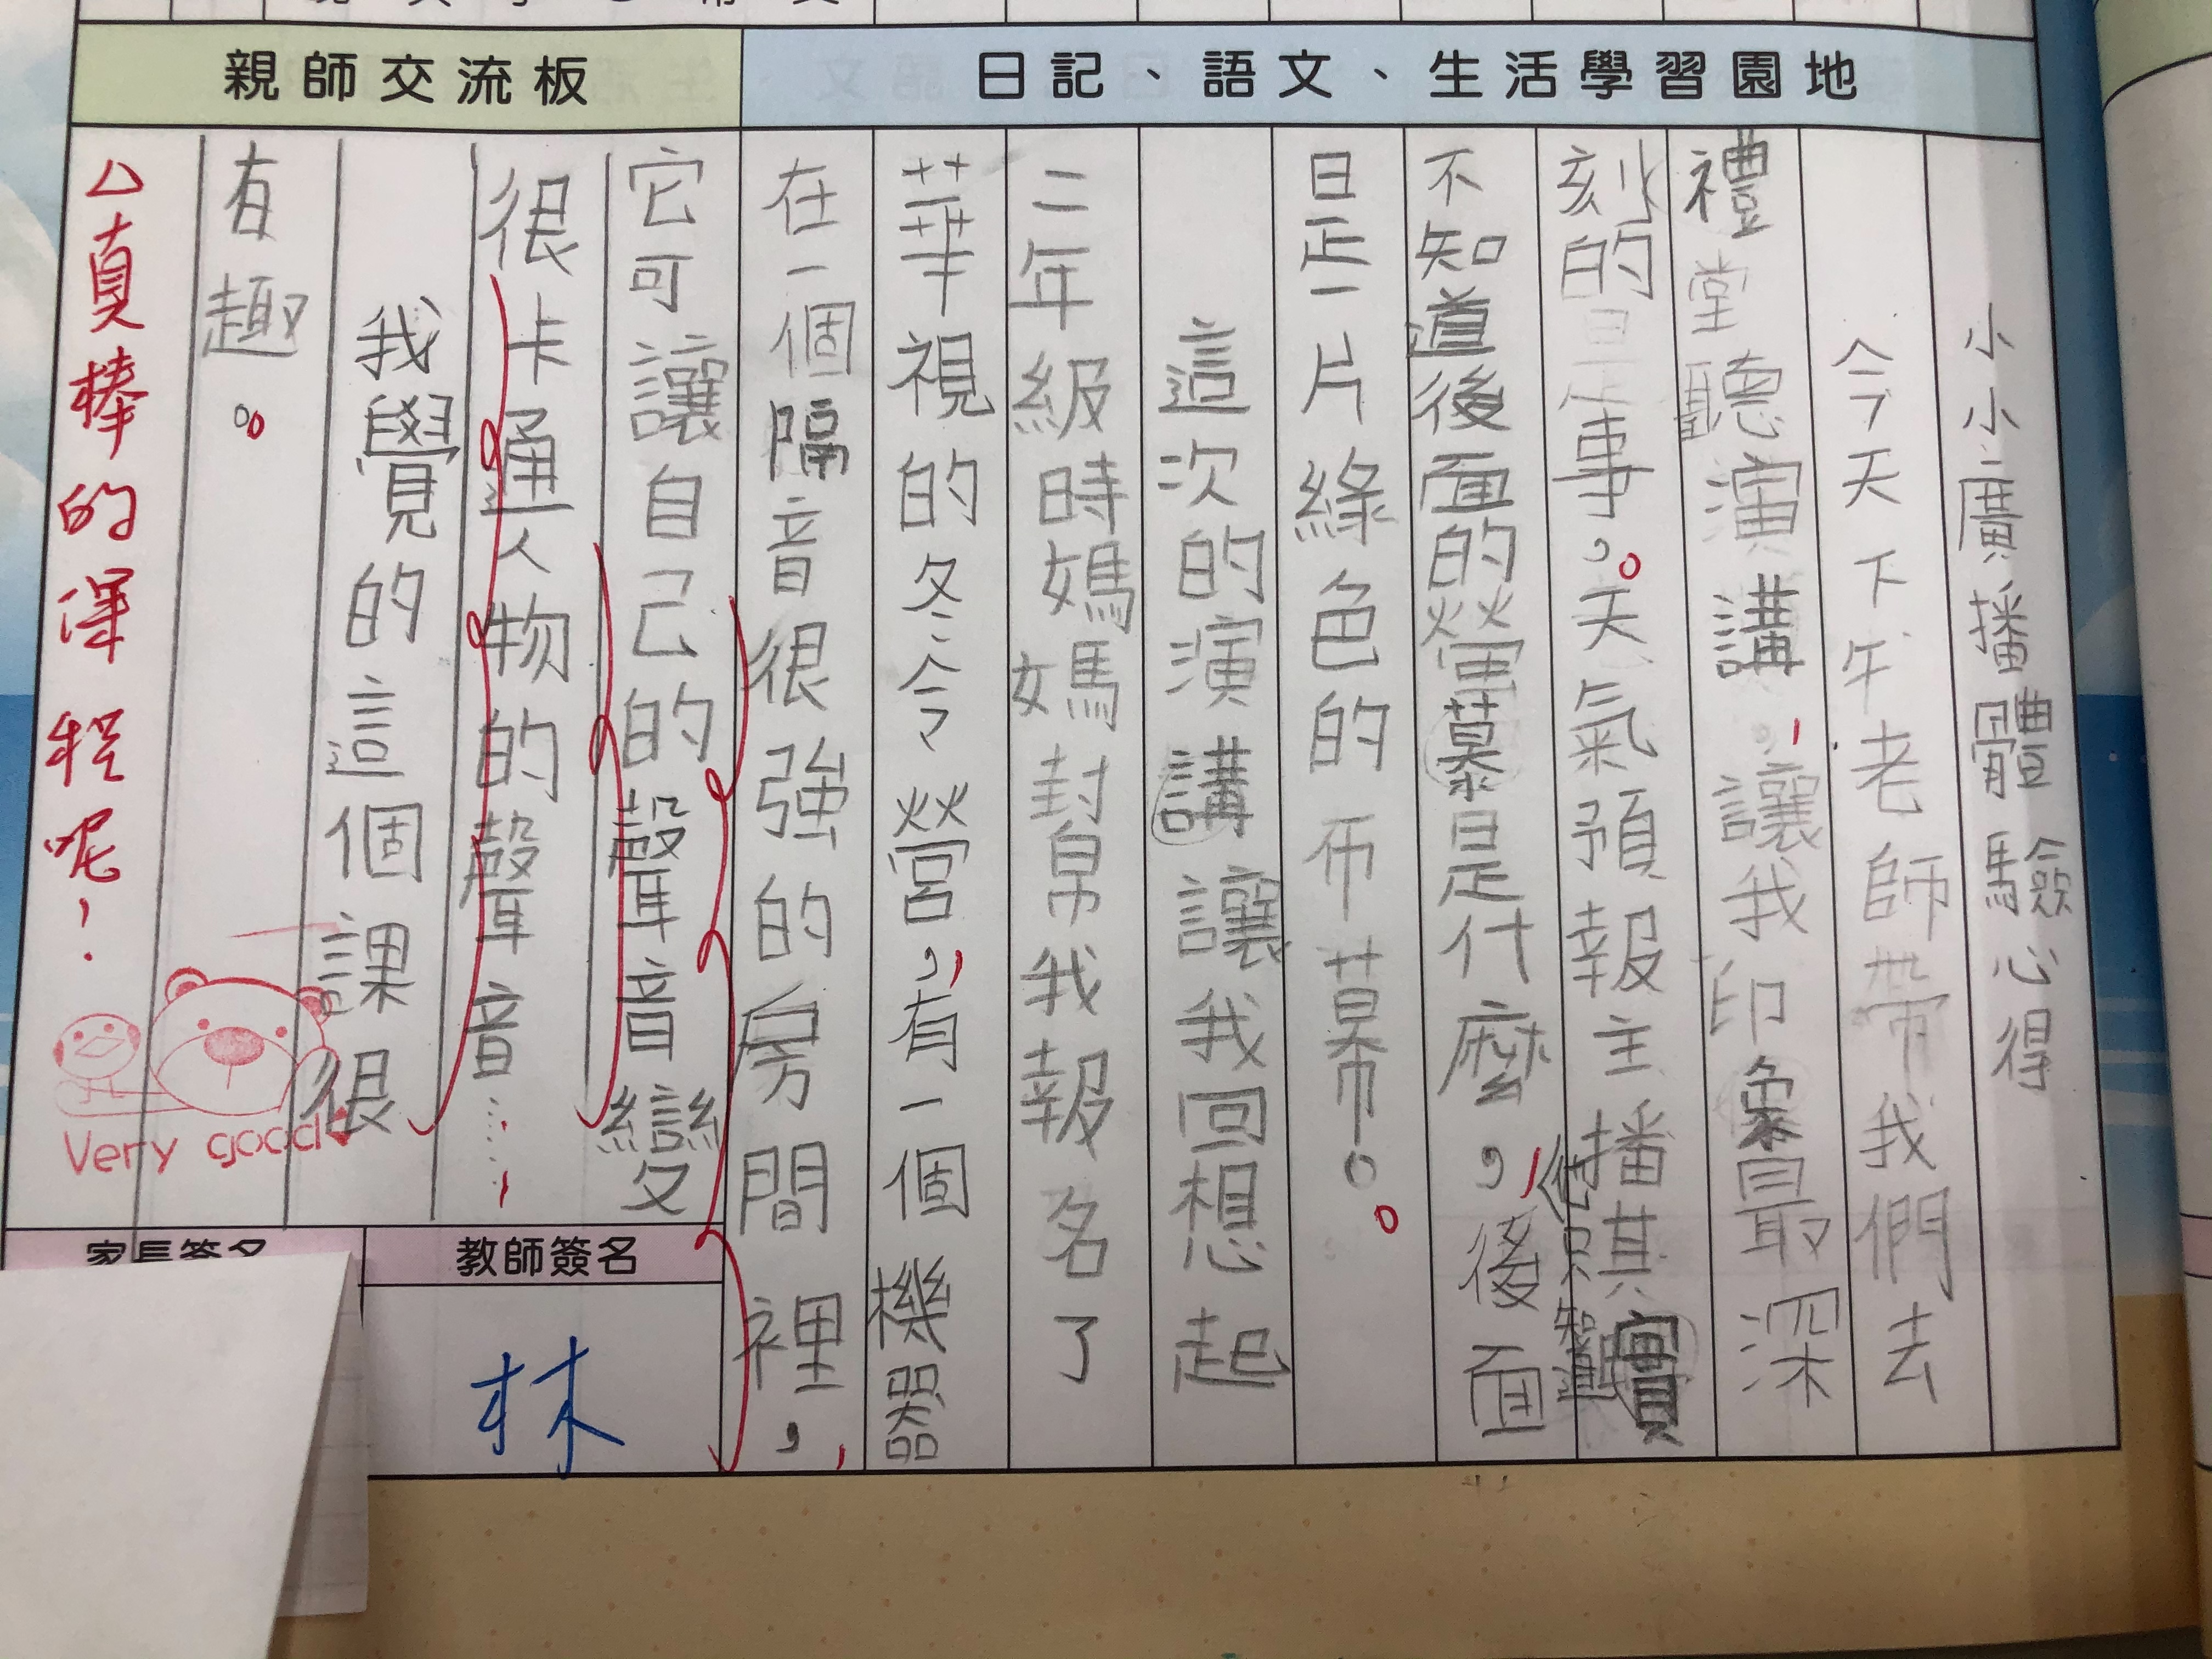 親師交流板
日記、語文、生活學習園地
小小廣播體驗心得
今天下午老師帶我們去
禮堂聽演講,讓我印象最深
刻的是事,。天氣預報主播其實
不知道後面的螢幕是什麼,他只知道後面
是一片綠色的布幕。
這次的演講讓我回想起
二年級時媽媽幫我報名了
華視的冬令營,有一個機器
在一個隔音很強的房間裡,
它可讓自己的聲音變
很卡通人物的聲音……
我覺的這個課很
有趣。
△真棒的課程呢!
Very good
教師簽名
林